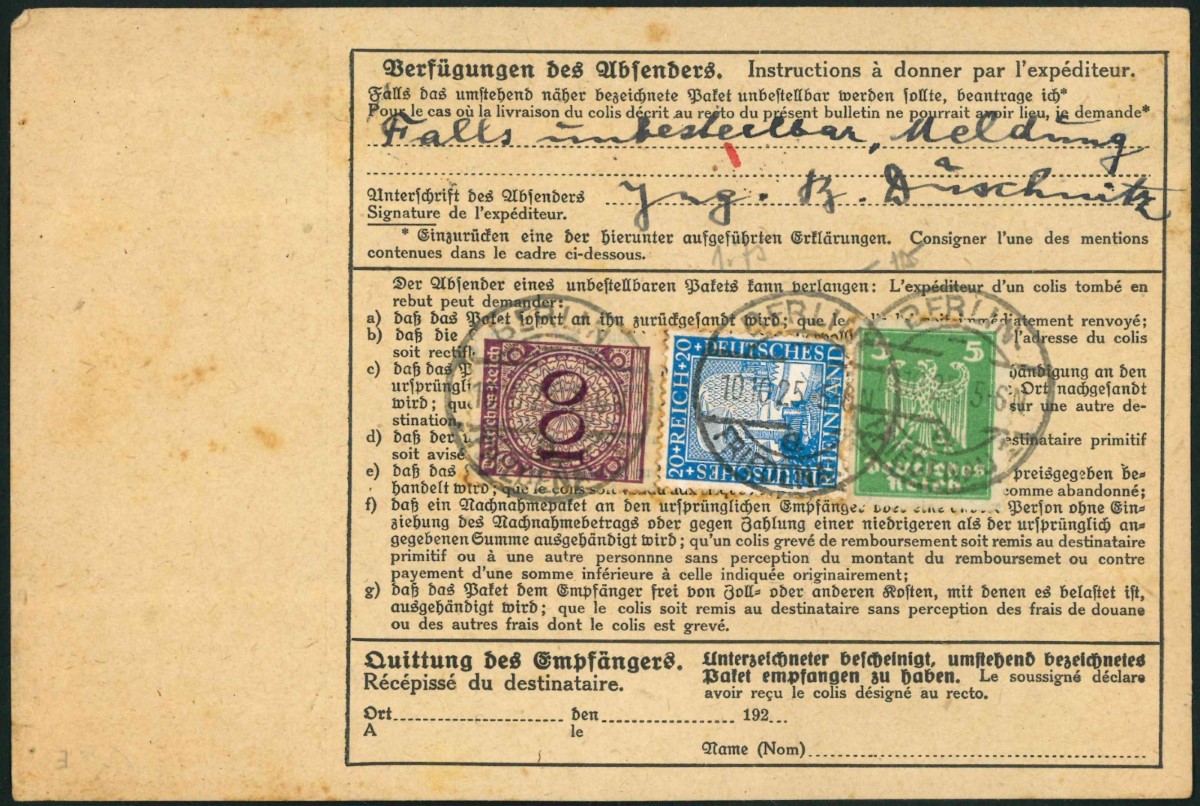 Verfügungen des Absenders. Instructions à donner par l'expéditeur.
Falls das umstehend näher bezeichnete Paket unbestellbar werden sollte, beantrage ich*
Pour le cas où la livraison du colis décrit au recto du présent bulletin ne pourrait avoir lieu, je demande*
Falls unbestellbar, Meldung
Unterschrift des Absenders
Signature de l'expéditeur.
Ing. B. Düschnitz
* Einzurücken eine der hierunter aufgeführten Erklärungen. Consigner l'une des mentions
contenues dans le cadre ci-dessous.
Der Absender eines unbestellbaren Pakets kann verlangen: L'expéditeur d'un colis tombé en
rebut peut demander:
a) daß das Paket sofort an ihn zurückgesandt wird; que le immédiatement renvoyé;
b) daß die l'adresse du colis
soit rectif
c) daß das P händigung an den
ursprüngli Ort nachgesandt
wird; que sur une autre de-
stination
d) daß der u destinataire primitif
soit avisé
e) daß das preisgegeben be-
handelt wird; que le colis soit comme abandonné;
f) daß ein Nachnahmepaket an den ursprünglichen Empfänger oder eine Person ohne Ein-
ziehung des Nachnahmebetrags oder gegen Zahlung einer niedrigeren als der ursprünglich an-
gegebenen Summe ausgehändigt wird; qu'un colis grevé de remboursement soit remis au destinataire
primitif ou à une autre personnne sans perception du montant du remboursemet ou contre
payement d'une somme inférieure à celle indiquée originairement;
g) daß das Paket dem Empfänger frei von Zoll- oder anderen Kosten, mit denen es belastet ist,
ausgehändigt wird; que le colis soit remis au destinataire sans perception des frais de douane
ou des autres frais dont le colis est grevé.
BERLIN
100
BERLIN
10.10.25
DEUTSCHES
RHEINLAND
DEUTSCHES
20+REICH+20
20
BERLIN
5-6N
5 5
Deutsches
Reich
Quittung des Empfängers.
Récépissé du destinataire.
Unterzeichneter bescheinigt, umstehend bezeichnetes
Paket empfangen zu haben. Le soussigné déclare
avoir reçu le colis désigné au recto.
Ort den 192
A le
Name (Nom)